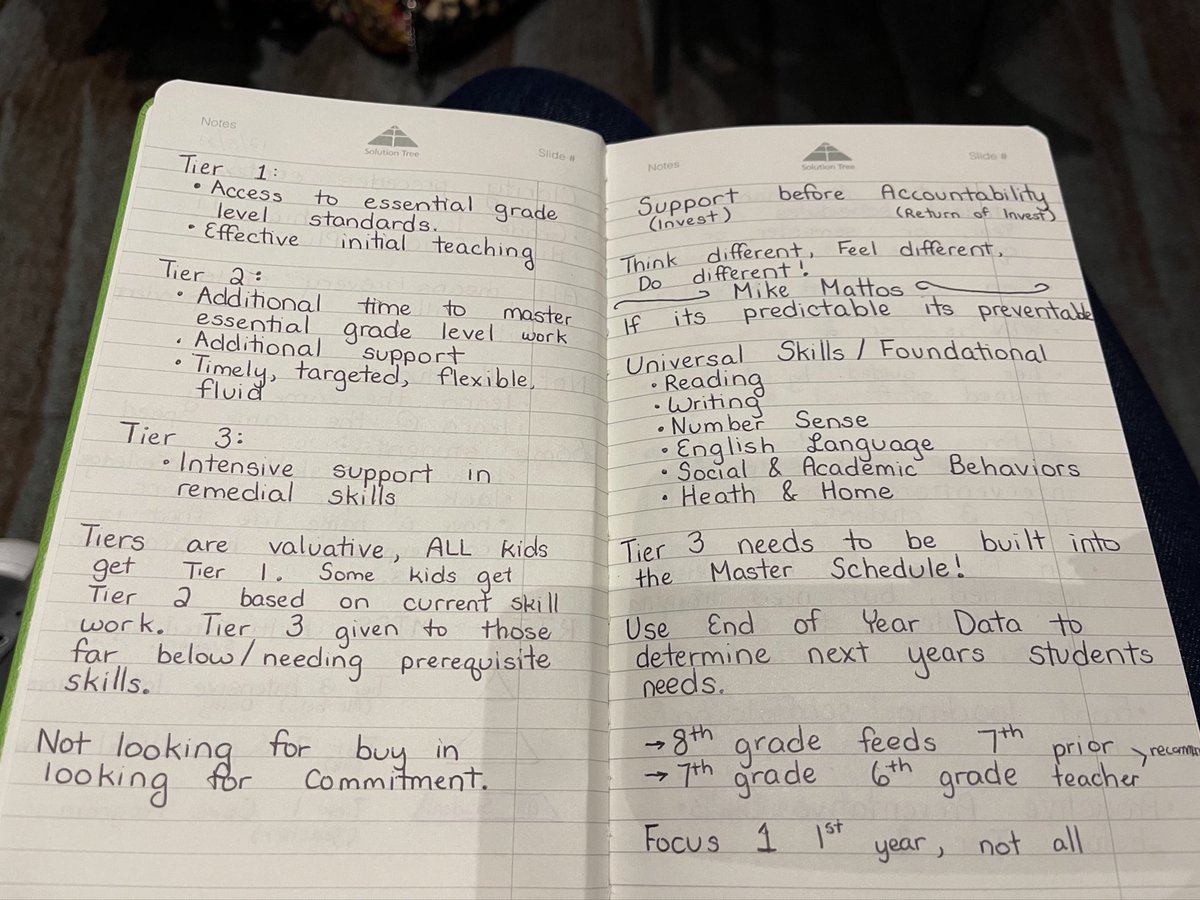 Notes
Solution Tree
Slide #
Tier 1:
• Access to essential grade
level standards.
• Effective initial teaching
Tier 2:
• Additional time to master
essential grade level work
• Additional support
• Timely, targeted, flexible,
fluid
Tier 3:
• Intensive support in
remedial skills
Tiers are valuative, ALL kids
get Tier 1. Some kids get
Tier 2 based on current skill
work. Tier 3 given to those
far below/needing prerequisite
skills.
Not looking for buy in
looking for commitment.
Notes
Solution Tree
Slide #
Support before Accountability
(Invest) (Return of Invest)
Think different, Feel different,
Do different!
Mike Mattos
If its predictable its preventable
Universal Skills / Foundational
• Reading
• Writing
• Number Sense
• English Language
• Social & Academic Behaviors
• Heath & Home
Tier 3 needs to be built into
the Master Schedule!
Use End of Year Data to
determine next years students
needs.
→ 8th grade feeds 7th prior
→ 7th grade 6th grade teacher
Focus 1 1st year, not all